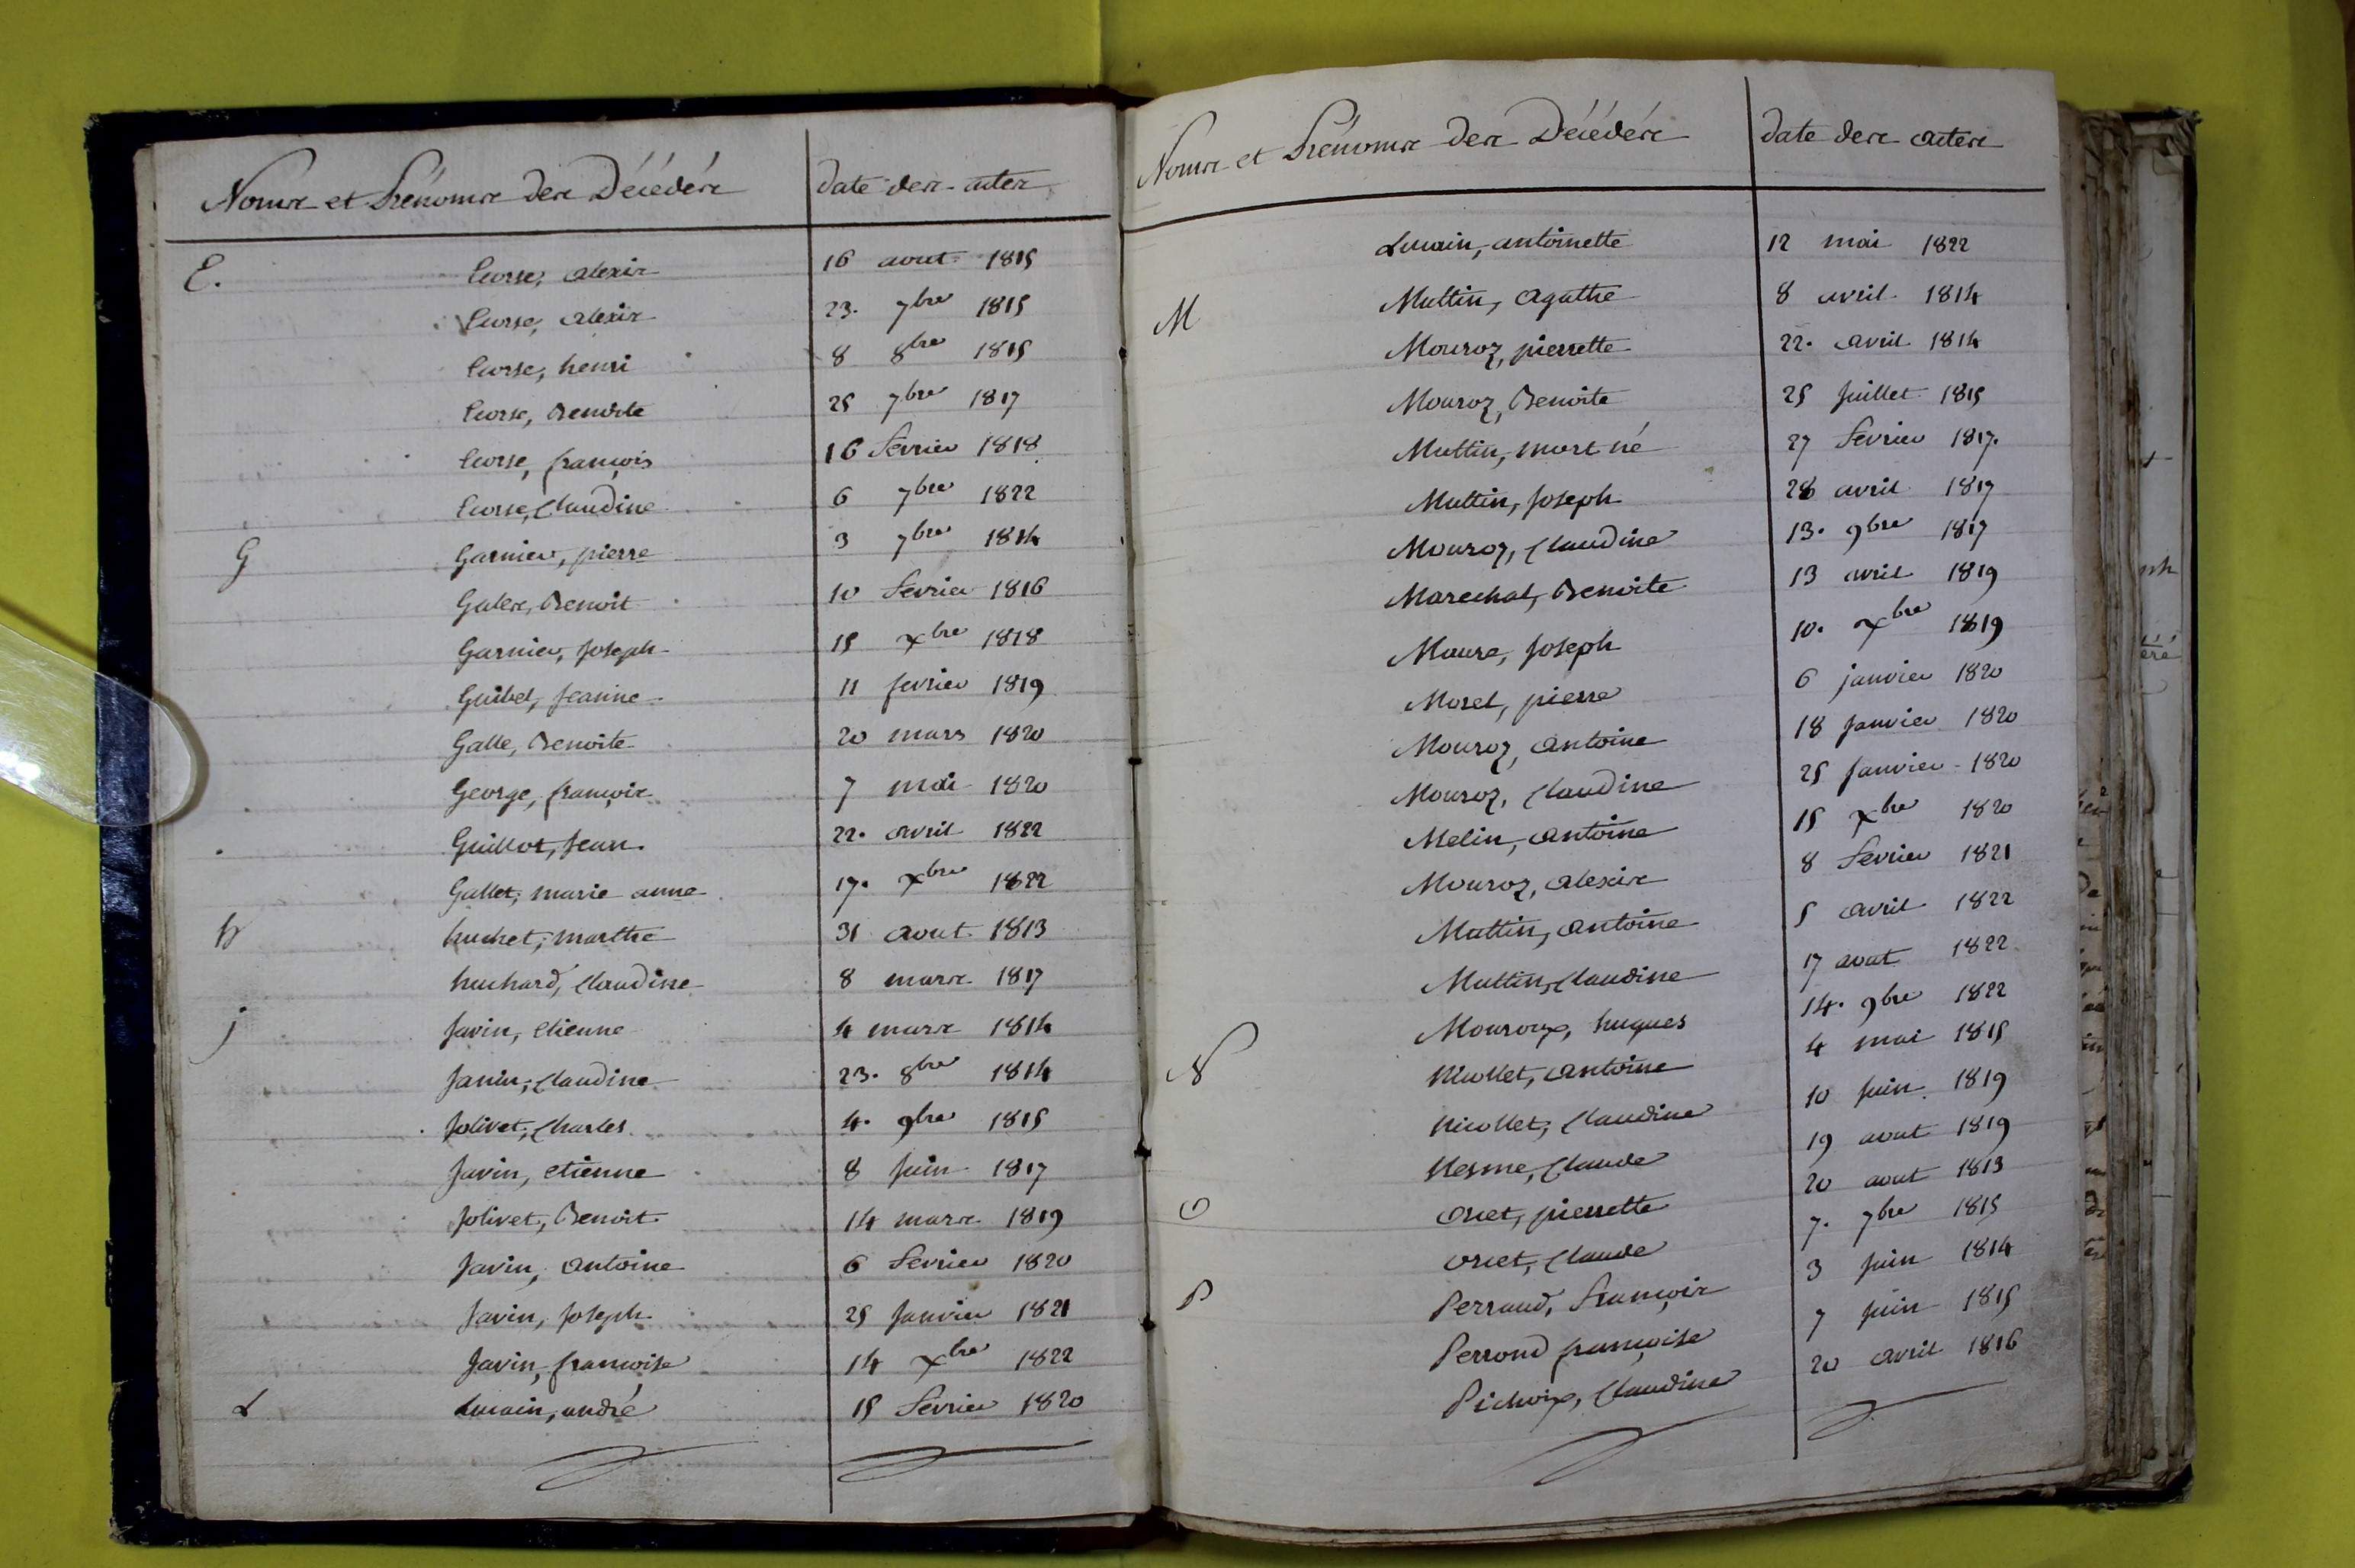 Noms et Prénoms des Décédés date des actes
E. Eurse, alexis 16 aout 1815
Eurse, alexis 23. 7bre 1815
Eurse, henri 8 8bre 1815
Eurse, Benoite 25 7bre 1817
Eurse, françois 16 fevrier 1818
Eurse, Claudine 6 7bre 1822
G Garnier, pierre 3 7bre 1814
Gales, Benoit 10 fevrier 1816
Garnier, joseph 15 xbre 1818
Guibel, jeanne 11 fevrier 1819
Galle, Benoite 20 mars 1820
George, françois 7 mai 1820
Guillot, jean 22. avril 1822
Gallet, marie anne 17. xbre 1822
h huchet, marthe 31 aout 1813
huchard, Claudine 8 mars 1817
j javin, etienne 4 mars 1814
janin, Claudine 23. 8bre 1814
jolivet, Charles 4. 9bre 1815
javin, etienne 8 juin 1817
jolivet, Benoit 14 mars 1819
javin, antoine 6 fevrier 1820
javin, joseph 25 janvier 1821
javin, françoise 14 xbre 1822
L Lucain, andré 15 fevrier 1820
Noms et Prénoms des Décédés date des actes
Lucain, antoinette 12 mai 1822
M Muttin, agathe 8 avril 1814
Mouroz, pierrette 22. avril 1814
Mouroz, Benoite 25 juillet 1815
Muttin, mort né 27 fevrier 1817.
Muttin, joseph 28 avril 1817
Mouroz, Claudine 13. 9bre 1817
Marechal, Benoite 13 avril 1819
Maure, joseph 10. xbre 1819
Morel, pierre 6 janvier 1820
Mouroz, antoine 18 janvier 1820
Mouroz, Claudine 25 janvier 1820
Melin, antoine 15 xbre 1820
Mouroz, alexis 8 fevrier 1821
Muttin, antoine 5 avril 1822
Muttin, Claudine 17 aout 1822
Mouroux, hugues 14. 9bre 1822
N Nicollet, antoine 4 mai 1815
Nicollet, Claudine 10 juin 1819
Nesme, Claude 19 aout 1819
O orcet, pierrette 20 aout 1813
orcet, Claude 7. 7bre 1815
P Perraud, françois 3 juin 1814
Perroud françoise 7 juin 1815
Pichoix, Claudine 20 avril 1816